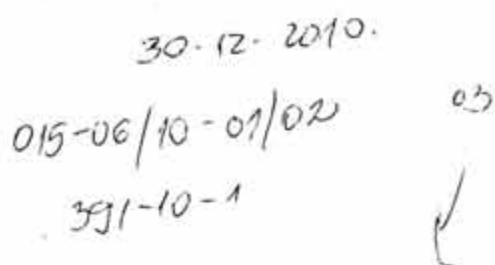 30. 12. 2010.
015-06/10-01/02
03
391-10-1